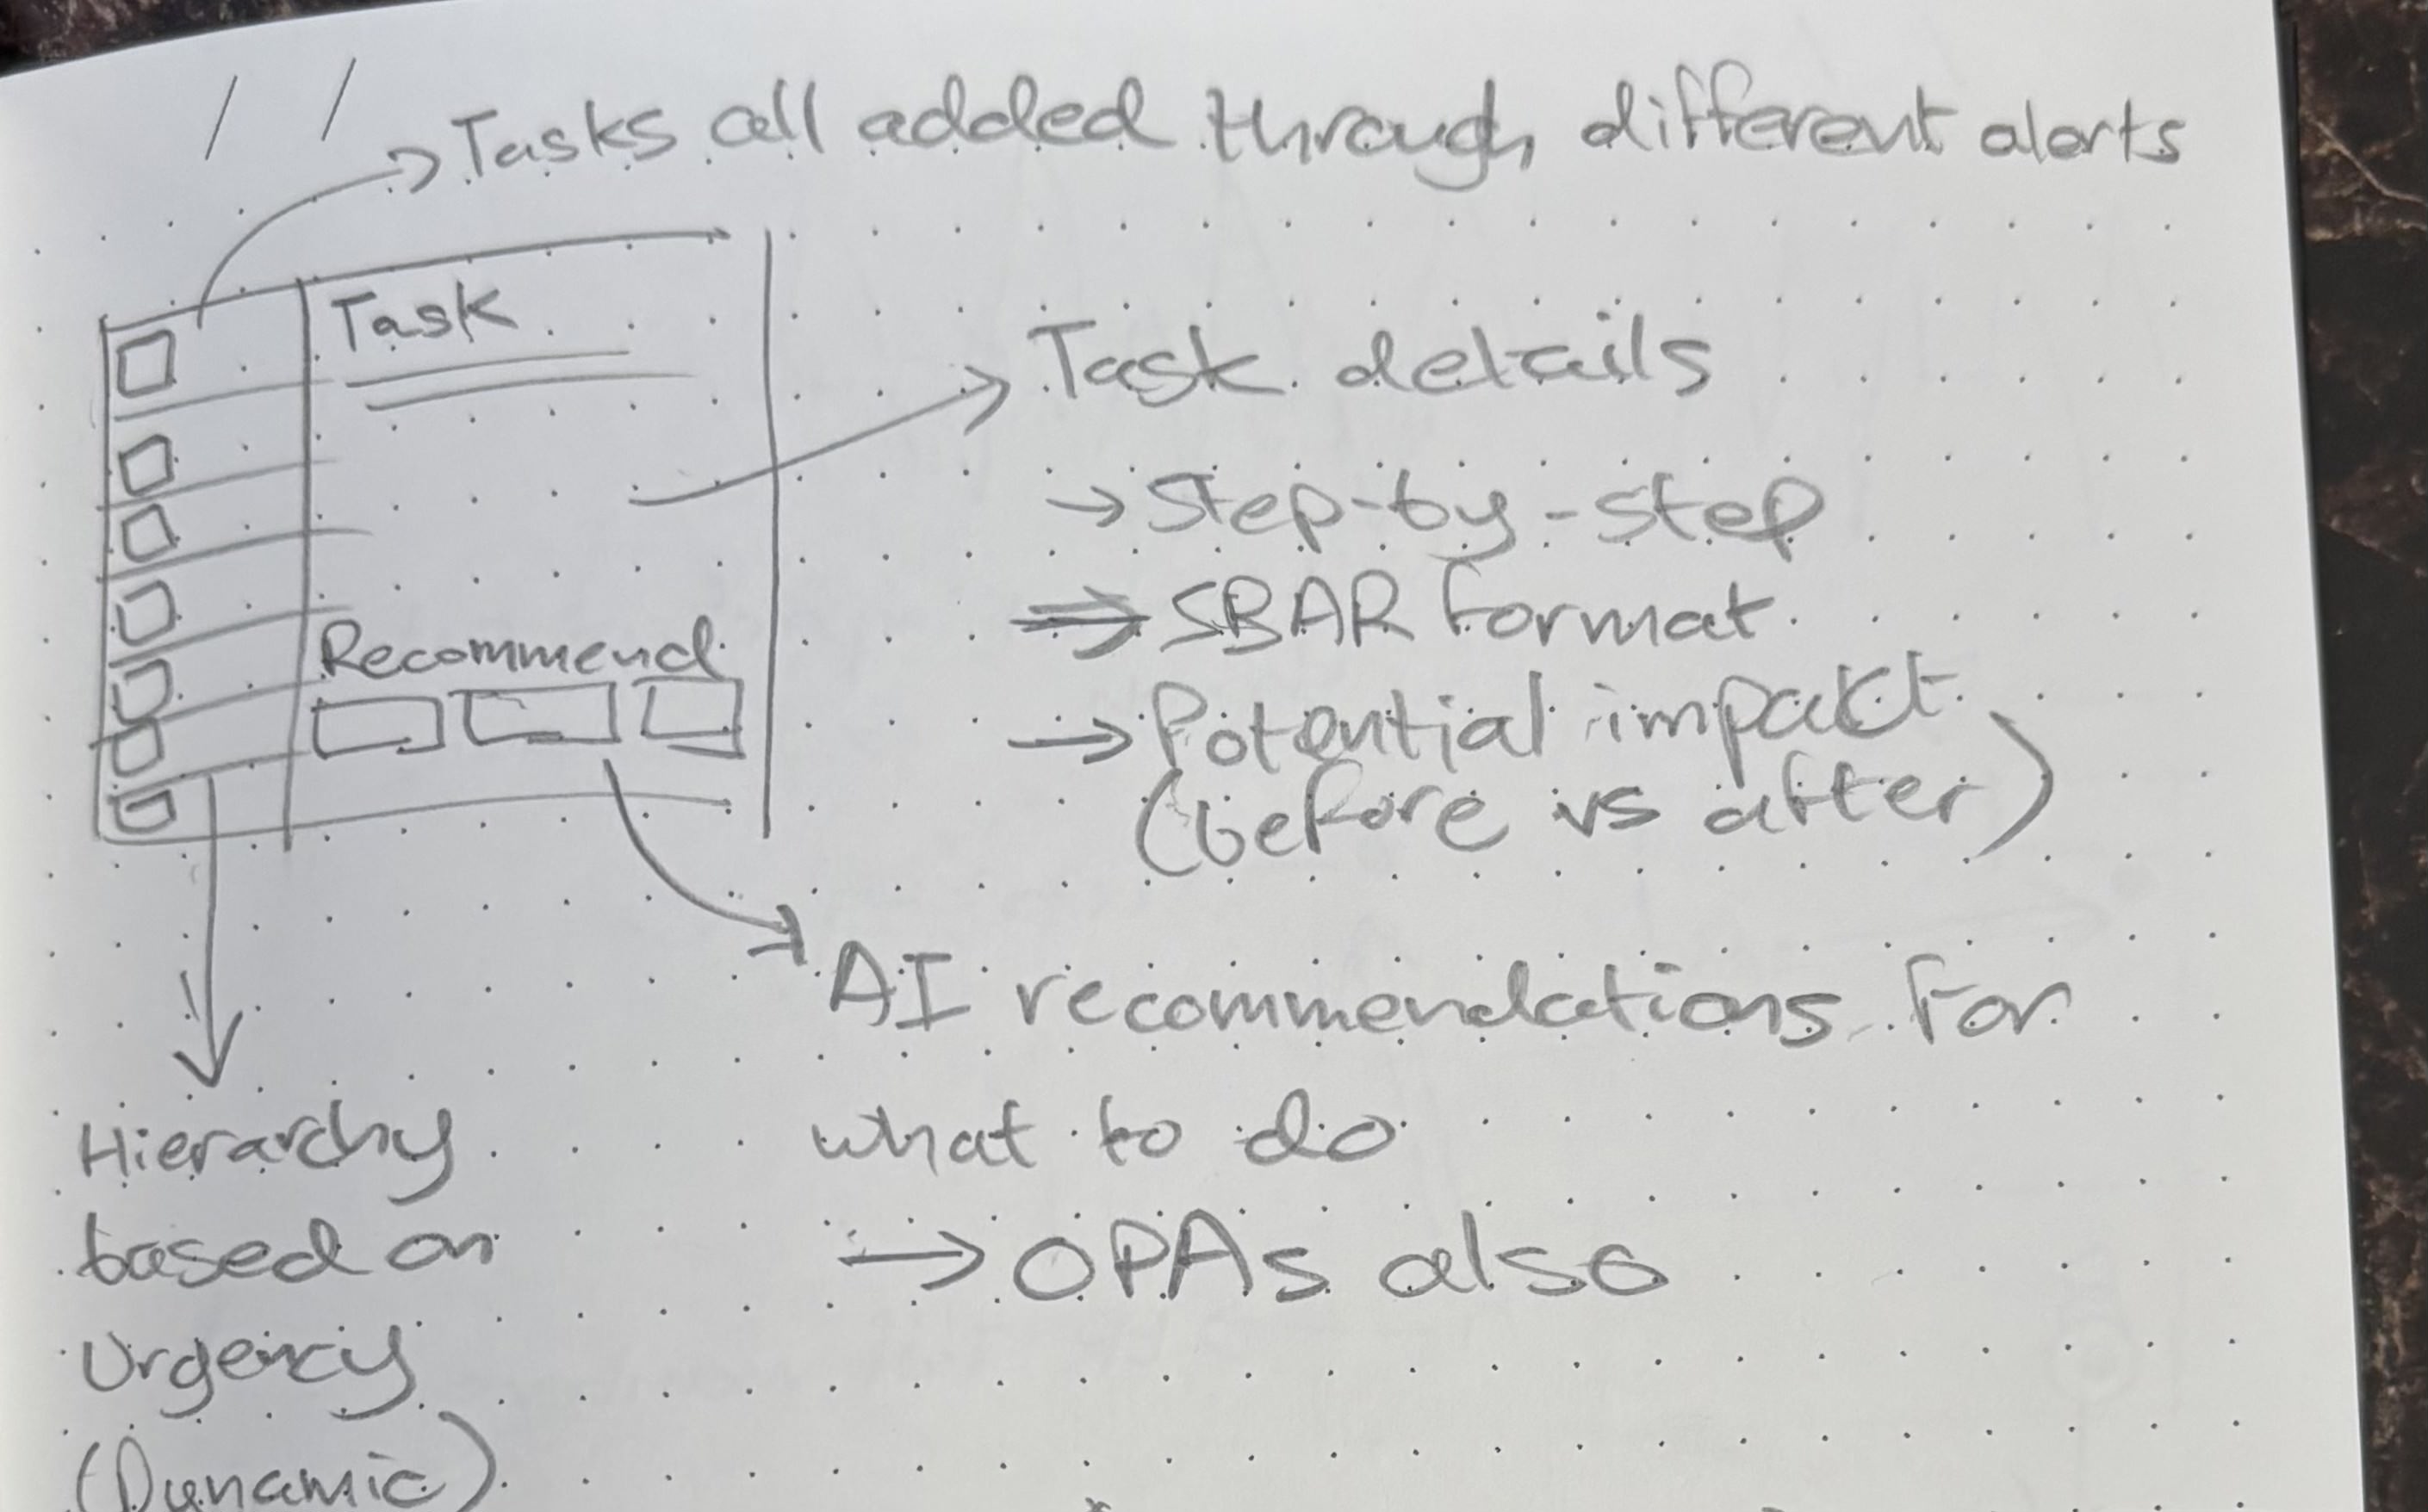 Tasks all added through different alerts
Task
Task details
→ Step-by-step
⇒ SBAR format
Recommend
→ Potential impact
(before vs after)
AI recommendations for
what to do
→ OPAs also
Hierarchy
based on
Urgency
(Dynamic)